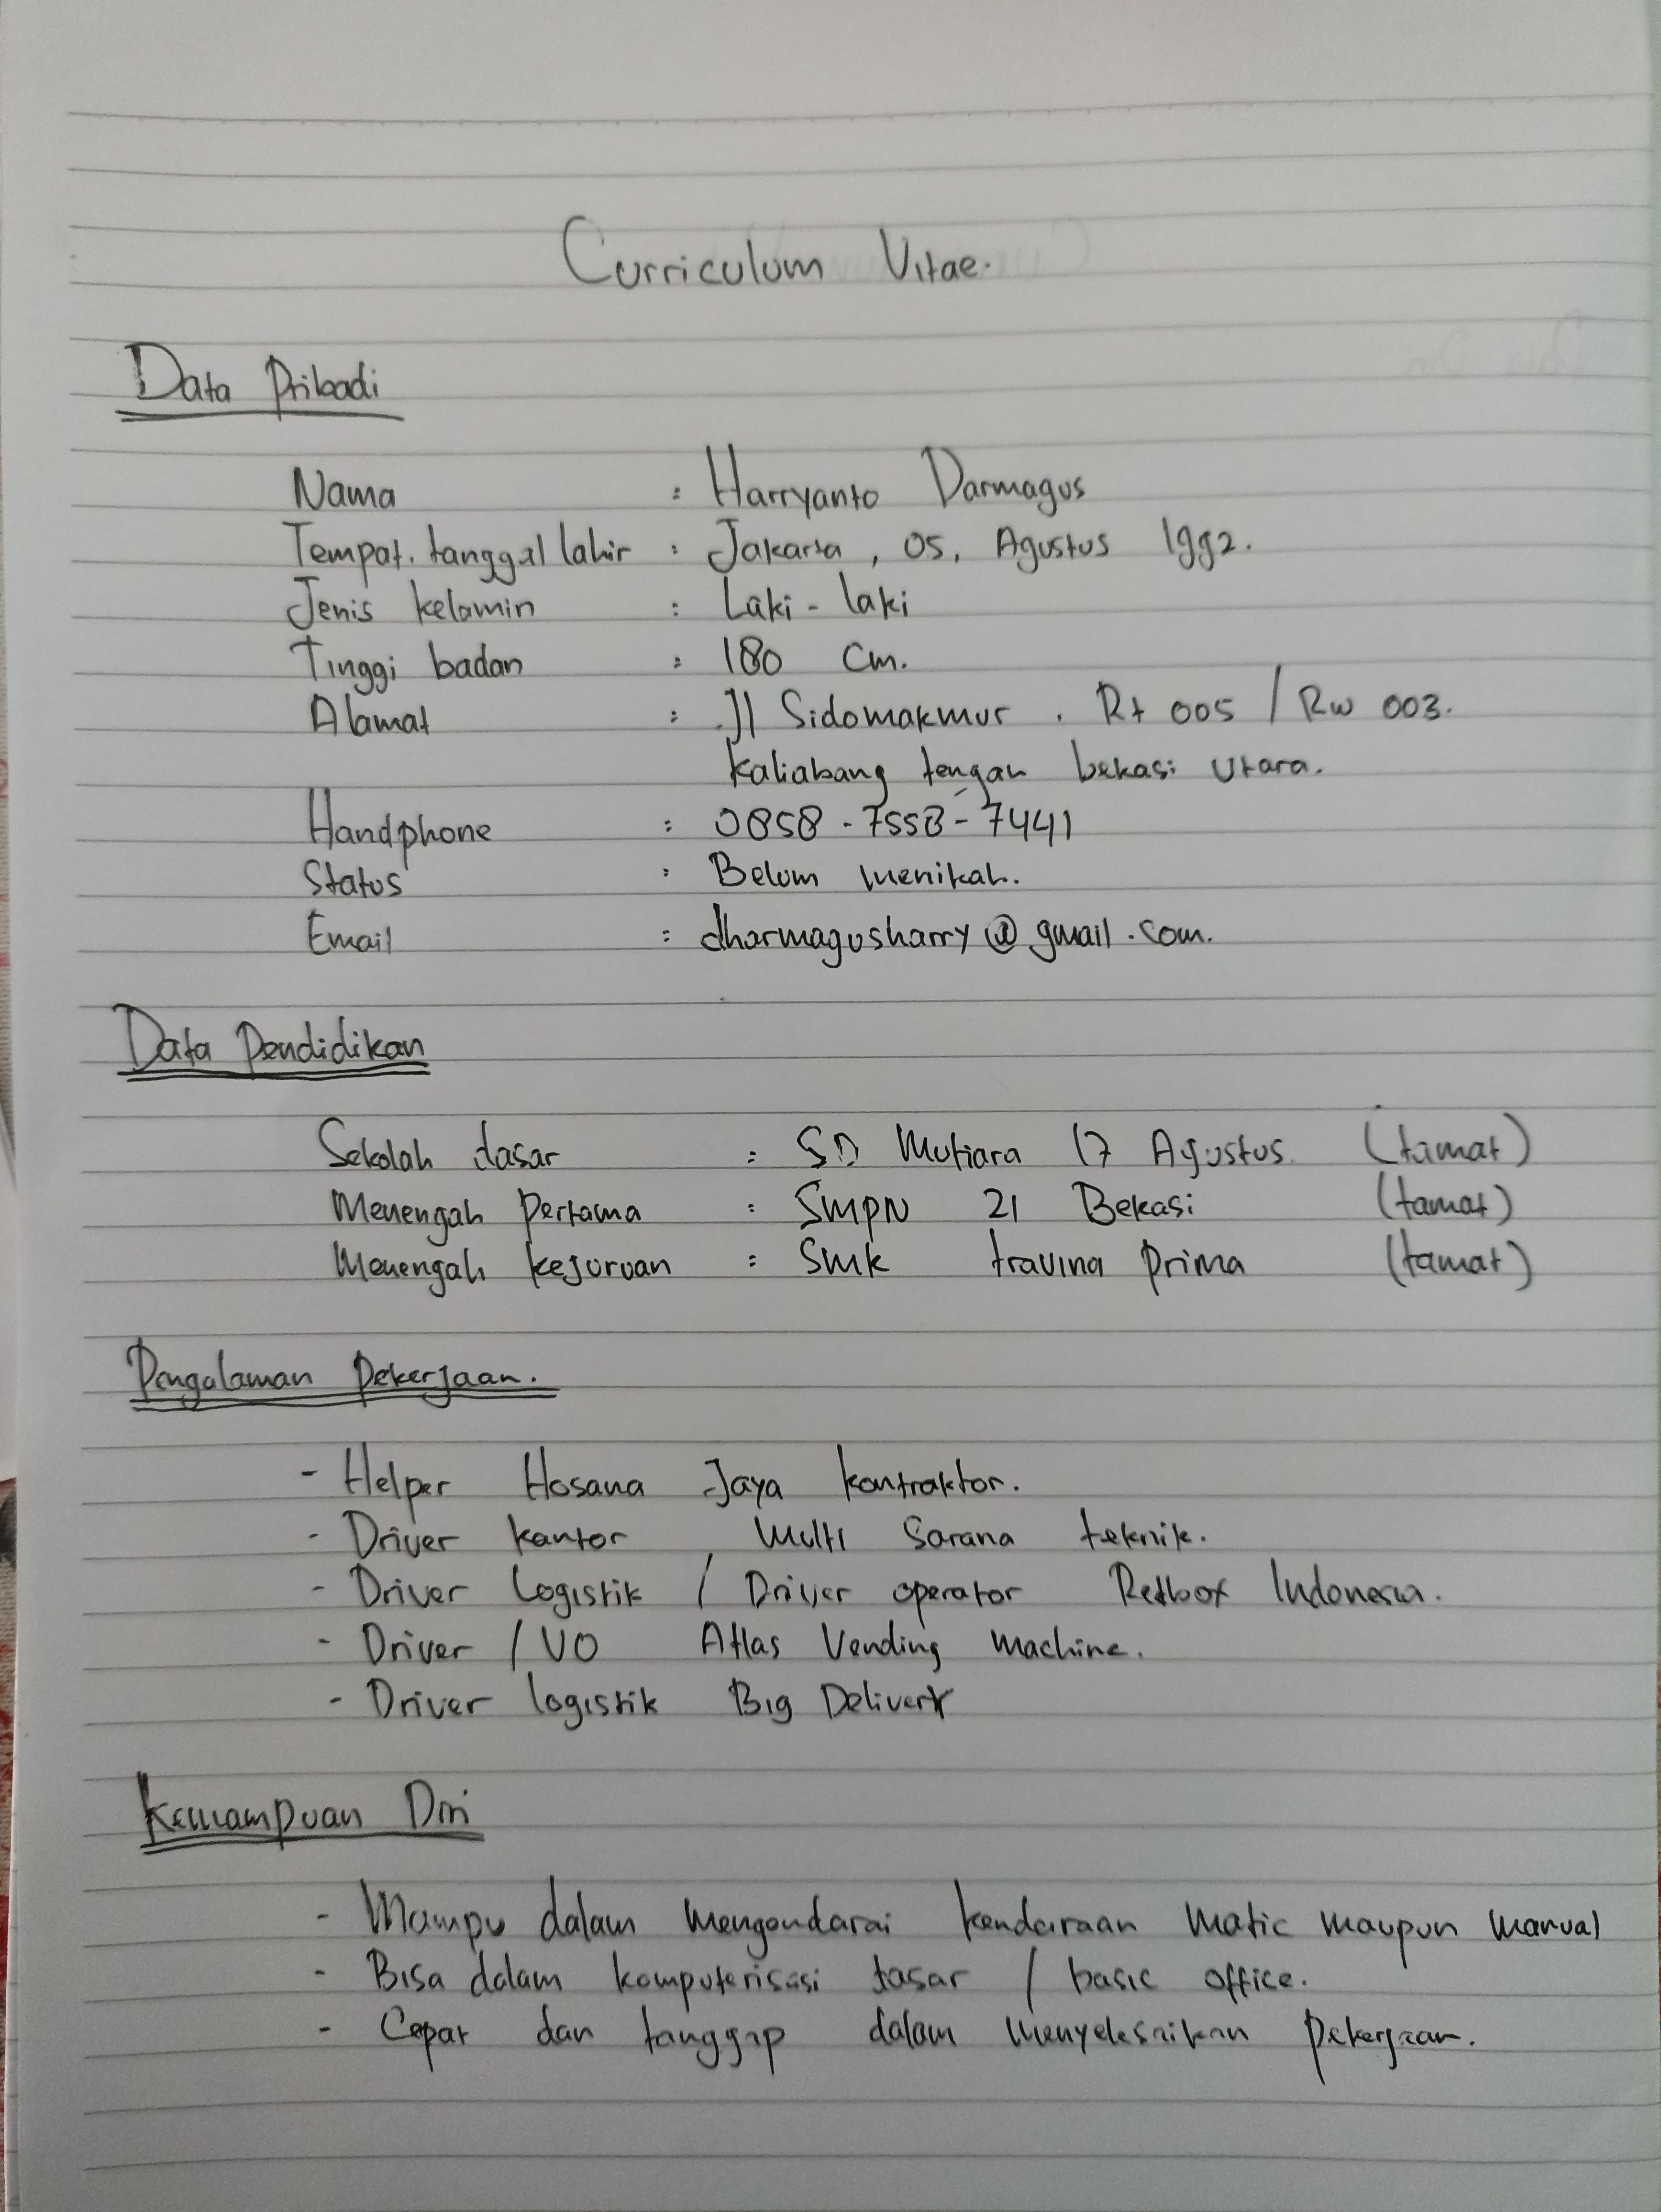 Curriculum Vitae.
Data Pribadi
Nama : Harryanto Darmagus
Tempat. tanggal lahir : Jakarta, 05, Agustus 1992.
Jenis kelamin : Laki-laki
Tinggi badan : 180 Cm.
Alamat : Jl Sidomakmur. Rt 005 / Rw 003.
kaliabang tengah bekasi Utara.
Handphone : 0858-7558-7441
Status : Belum menikah.
Email : dharmagusharry@gmail.com.
Data Pendidikan
Sekolah dasar : SD Mutiara 17 Agustus (tamat)
Menengah Pertama : SMPN 21 Bekasi (tamat)
Menengah kejuruan : Smk travina prima (tamat)
Pengalaman Pekerjaan.
- Helper Hosana Jaya kontraktor.
- Driver kantor Multi Sarana teknik.
- Driver Logistik / Driver operator Redbox Indonesia.
- Driver / VO Atlas Vending Machine.
- Driver logistik Big Delivery
Kemampuan Diri
- Mampu dalam mengendarai kendaraan Matic maupun Manual
- Bisa dalam komputerisasi dasar / basic office.
- Cepat dan tanggap dalam menyelesaikan pekerjaan.